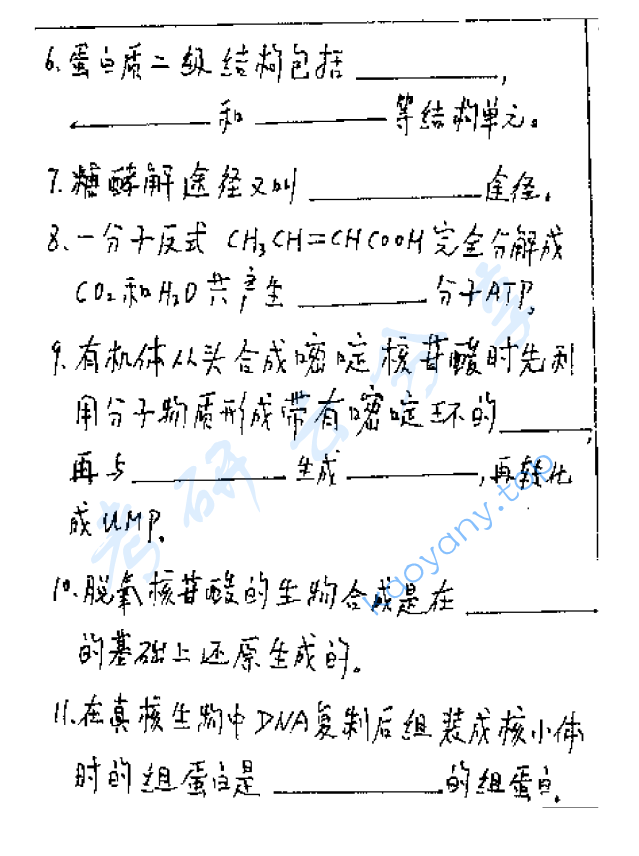 6、蛋白质二级结构包括__________,
__________和__________等结构单元。
7、糖酵解途径又叫__________途径。
8、一分子反式 CH₃CH=CHCOOH完全分解成
CO₂和H₂O共产生__________分子ATP。
9、有机体从头合成嘧啶核苷酸时先利
用分子物质形成带有嘧啶环的______,
再与__________生成__________,再转化
成UMP。
10、脱氧核苷酸的生物合成是在__________
的基础上还原生成的。
11、在真核生物中DNA复制后组装成核小体
时的组蛋白是__________的组蛋白。
考研云分享
kaoyany.top